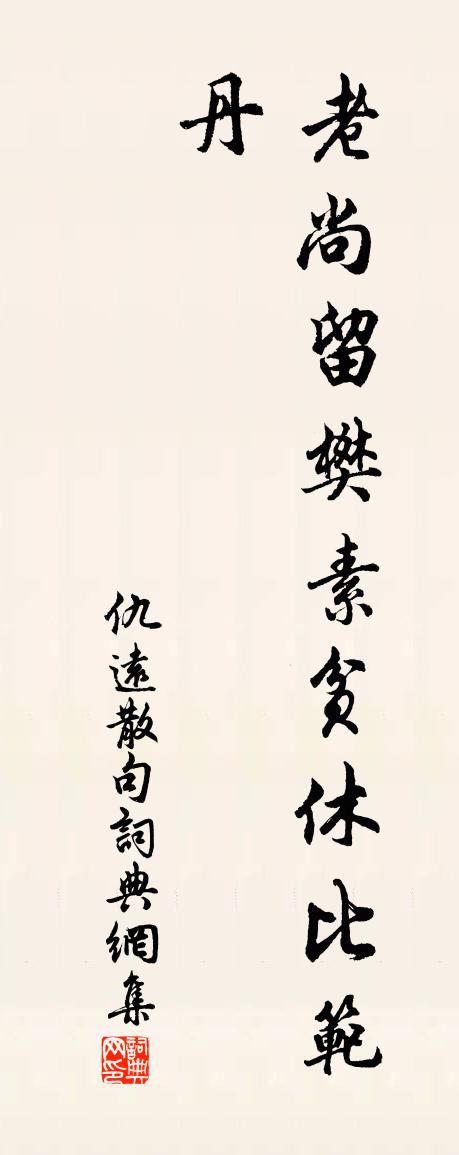 老尚留樊素貧休比範
丹
仇遠散句詞典網集
詞典网印